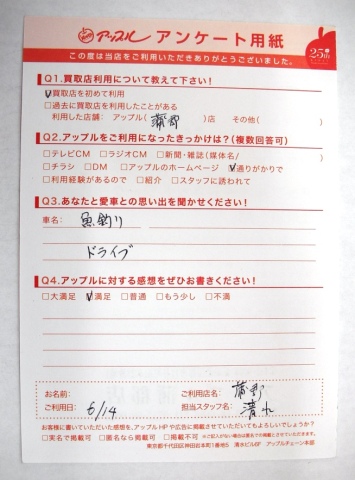 アップル アンケート用紙
この度は当店をご利用いただきありがとうございました。
25th
Q1.買取店利用について教えて下さい!
☑買取店を初めて利用
□過去に買取店を利用したことがある
利用した店舗: アップル( 蒲郡 )店 その他( )
Q2.アップルをご利用になったきっかけは?(複数回答可)
□テレビCM □ラジオCM □新聞・雑誌(媒体名/ )
□チラシ □DM □アップルのホームページ ☑通りがかりで
□利用経験があるので □紹介 □スタッフに誘われて
Q3.あなたと愛車との思い出を聞かせください!
車名: 魚釣り
ドライブ
Q4.アップルに対する感想をぜひお書きください!
□大満足 ☑満足 □普通 □もう少し □不満
お名前: ご利用店名: 蒲郡
ご利用日: 6/14 担当スタッフ名: 清水
お客様に書いていただいた感想を、アップルHPや広告に掲載させていただいてもよろしいでしょうか?
□実名で掲載可 □匿名なら掲載可 □掲載不可 ※ご記入がない場合は匿名で掲載とさせていただきます。
東京都千代田区神田岩本町1番地5 清水ビル6F アップルチェーン本部